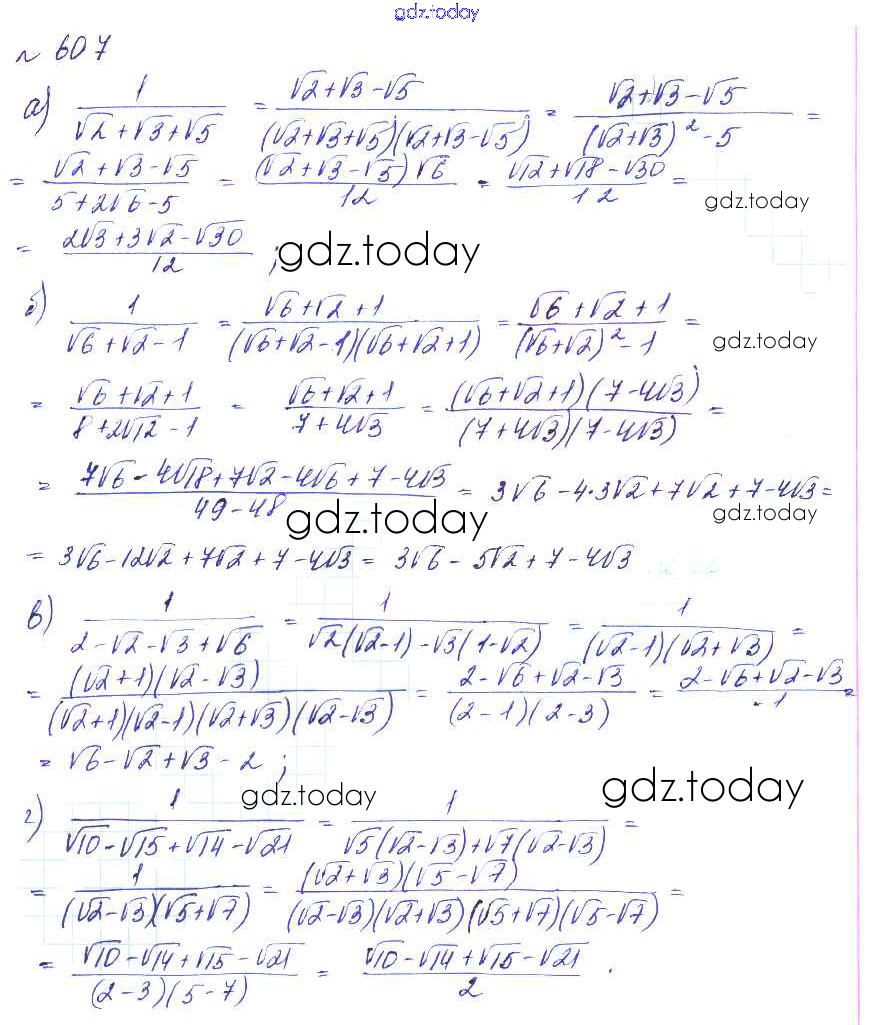 gdz.today
№ 607
а) 1/(√2+√3+√5) = (√2+√3-√5)/((√2+√3+√5)(√2+√3-√5)) = (√2+√3-√5)/((√2+√3)²-5) =
= (√2+√3-√5)/(5+2√6-5) = ((√2+√3-√5)√6)/12 = (√12+√18-√30)/12 =
gdz.today
= (2√3+3√2-√30)/12 ;
gdz.today
б) 1/(√6+√2-1) = (√6+√2+1)/((√6+√2-1)(√6+√2+1)) = (√6+√2+1)/((√6+√2)²-1) =
gdz.today
= (√6+√2+1)/(8+2√12-1) = (√6+√2+1)/(7+4√3) = ((√6+√2+1)(7-4√3))/((7+4√3)(7-4√3)) =
= (7√6-4√18+7√2-4√6+7-4√3)/(49-48) = 3√6-4·3√2+7√2+7-4√3 =
gdz.today
gdz.today
= 3√6-12√2+7√2+7-4√3 = 3√6-5√2+7-4√3
в) 1/(2-√2-√3+√6) = 1/(√2(√2-1)-√3(1-√2)) = 1/((√2-1)(√2+√3)) =
= ((√2+1)(√2-√3))/((√2+1)(√2-1)(√2+√3)(√2-√3)) = (2-√6+√2-√3)/((2-1)(2-3)) = (2-√6+√2-√3)/-1 =
= √6-√2+√3-2 ;
gdz.today
gdz.today
г) 1/(√10-√15+√14-√21) = 1/(√5(√2-√3)+√7(√2-√3)) =
= 1/((√2-√3)(√5+√7)) = ((√2+√3)(√5-√7))/((√2-√3)(√2+√3)(√5+√7)(√5-√7)) =
= (√10-√14+√15-√21)/((2-3)(5-7)) = (√10-√14+√15-√21)/2 .